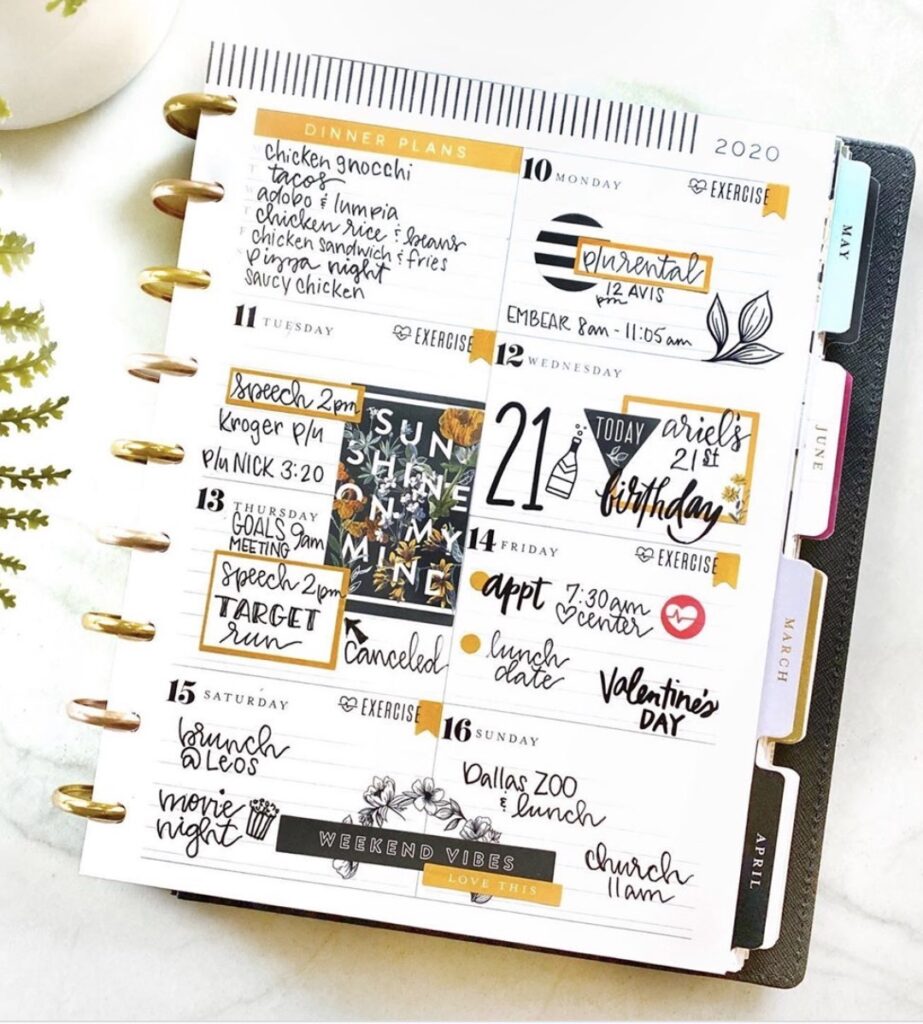 2020
DINNER PLANS
chicken gnocchi
tacos
adobo & lumpia
chicken rice & beans
chicken sandwich & fries
pizza night
saucy chicken
10 MONDAY
EXERCISE
p/u rental
12 AVIS
pm
EMBEAR 8am - 11:05am
11 TUESDAY
EXERCISE
speech 2pm
Kroger p/u
p/u NICK 3:20
SUN
SHINE
ON MY
MIND
12 WEDNESDAY
21
TODAY
ariel's
21st
birthday
13 THURSDAY
GOALS 9am
MEETING
speech 2pm
TARGET
run
Canceled
14 FRIDAY
EXERCISE
appt 7:30am
♡center
lunch
date
Valentine's
DAY
15 SATURDAY
EXERCISE
brunch
@ Leos
movie
night
16 SUNDAY
Dallas ZOO
& lunch
church
11am
WEEKEND VIBES
LOVE THIS
MAY
JUNE
MARCH
APRIL